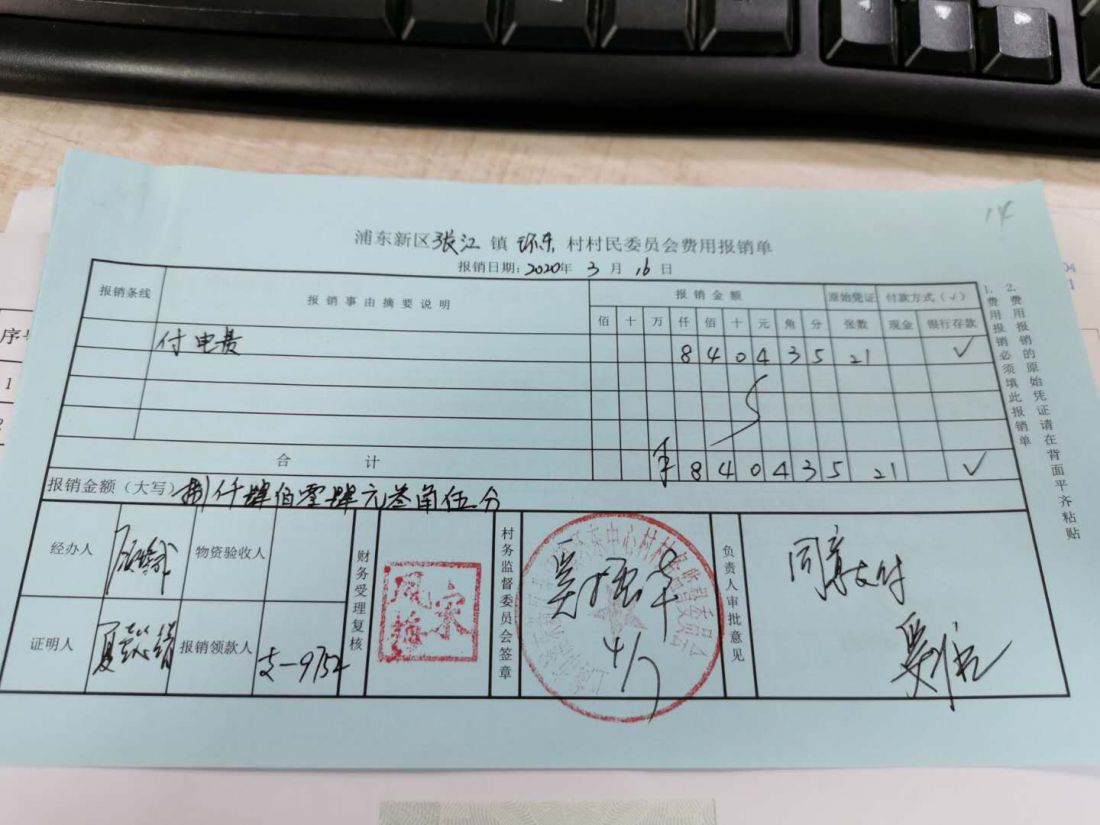 14
浦东新区张江镇环东村村民委员会费用报销单
报销日期:2020年3月16日
报销条线 报销事由摘要说明 报销金额 原始凭证 付款方式(√)
佰 十 万 仟 佰 十 元 角 分 张数 现金 银行存款
付电费 8 4 0 4 3 5 21 √
合计 ¥ 8 4 0 4 3 5 21 √
报销金额(大写)捌仟肆佰零肆元叁角伍分
经办人 物资验收人 财务受理复核 村务监督委员会签章 负责人审批意见 同意支付
证明人 报销领款人 支-9754
宋凤梅
4/7
1.费用报销必须填此报销单
2.费用报销的原始凭证请在背面平齐粘贴
序号
1
2
04
1